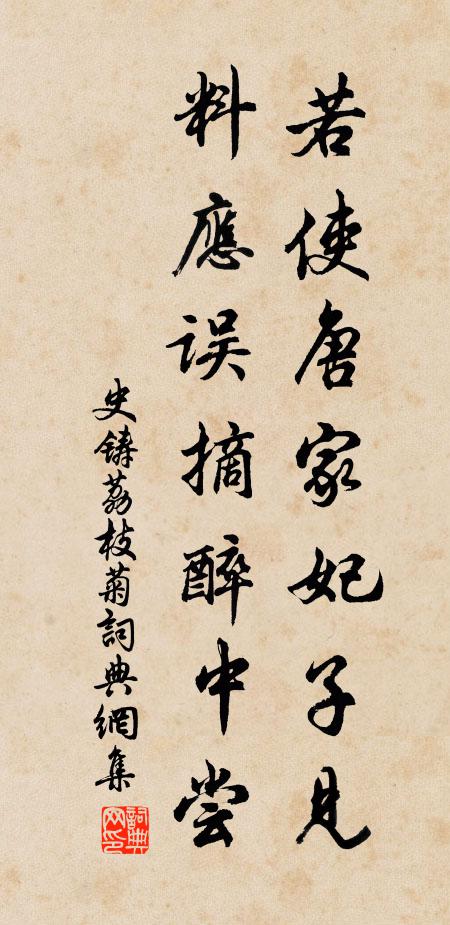 若使唐家妃子見
料應误摘醉中尝
史鑄荔枝菊詞典網集
詞典网印